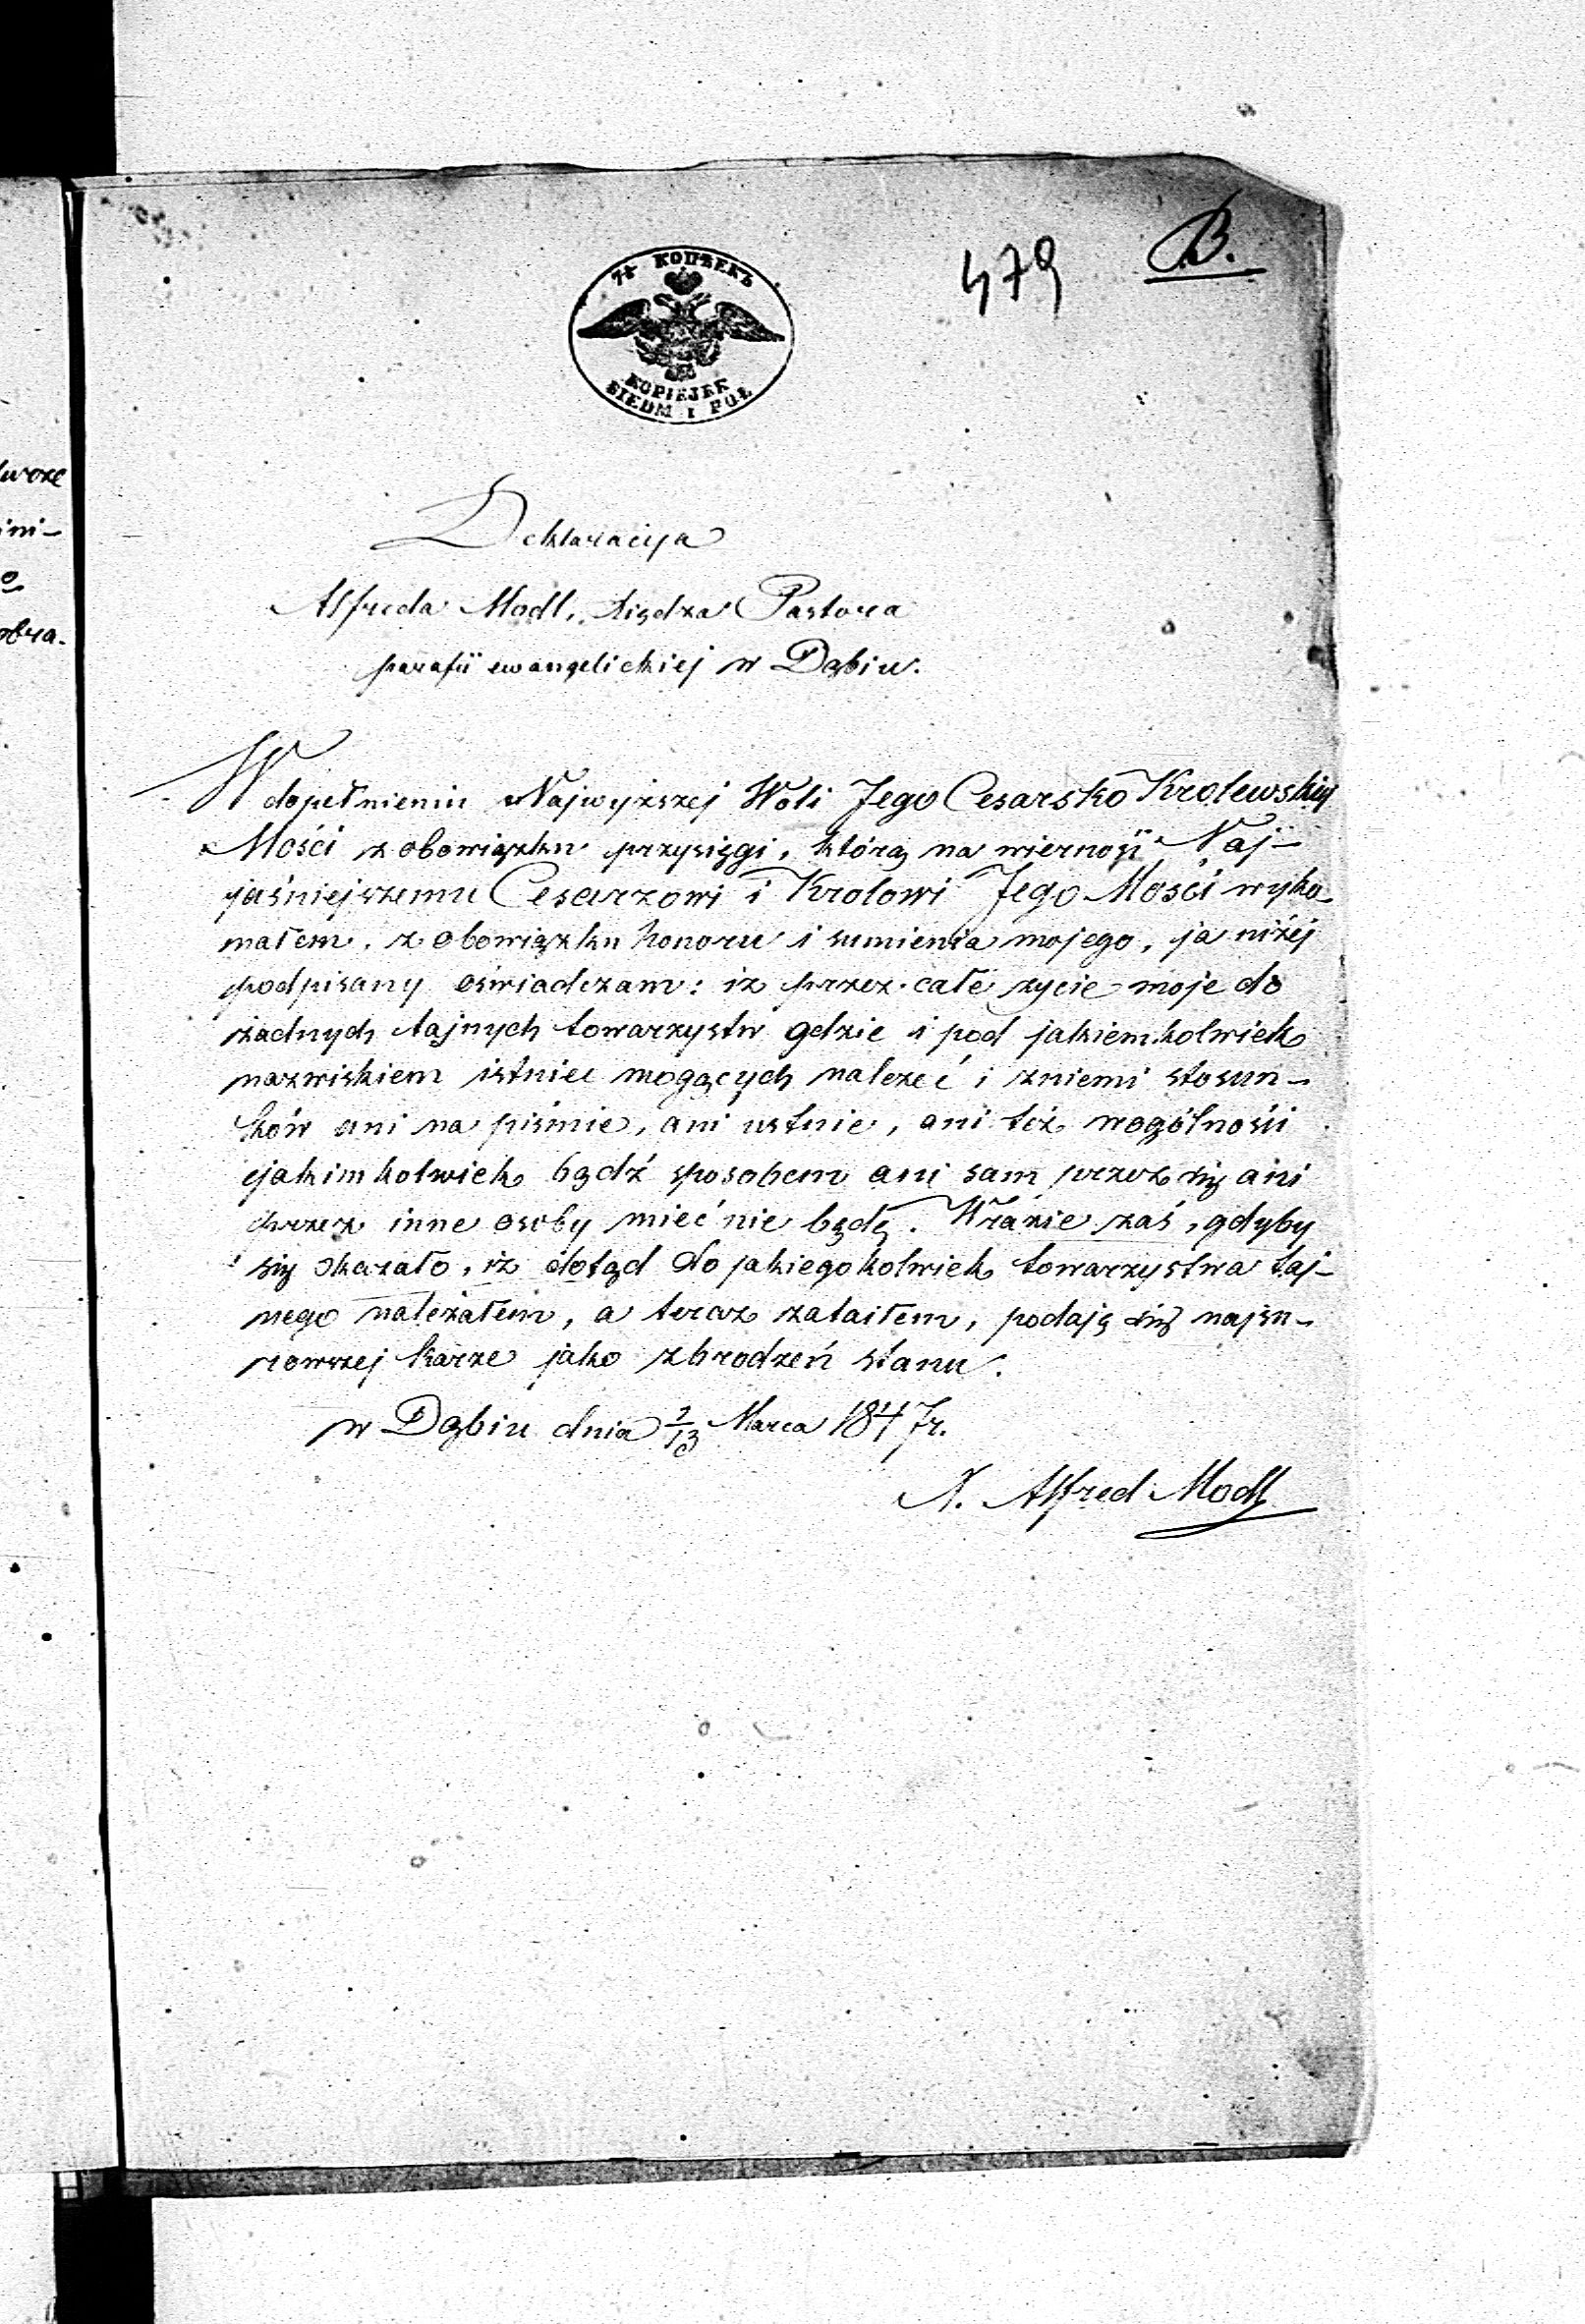 wrze
ini-
o
obra.
479 B.
7½ КОПѢЕКЪ
KOPIEJEK
SIEDM I PÓŁ
Deklaracyja
Alfreda Modl, księdza Pastora
parafii ewangelickiej w Dąbiu.
W dopełnieniu Najwyższej Woli Jego Cesarsko Krolewskiej
Mości z obowiązku przysięgi, którą na wierność Naj-
jaśniejszemu Cesarzowi i Krolowi Jego Mości wyko-
nałem, z obowiązku honoru i sumienia mojego, ja niżej
podpisany oświadczam: iż przez całe życie moje do
żadnych tajnych towarzystw gdzie i pod jakiemkolwiek
nazwiskiem istnieć mogących należeć i zniemi stosun-
ków ani na piśmie, ani ustnie, ani też wogólności
jakimkolwiek bądź sposobem ani sam przez się ani
przez inne osoby mieć nie będę. Wrazie zaś, gdyby
się okazało, iż dotąd do jakiegokolwiek towarzystwa taj-
nego należałem, a teraz zataiłem, podaję się najsu-
rowszej karze jako zbrodzeń stanu.
w Dąbiu dnia 1/13 Marca 1847r.
X. Alfred Modl